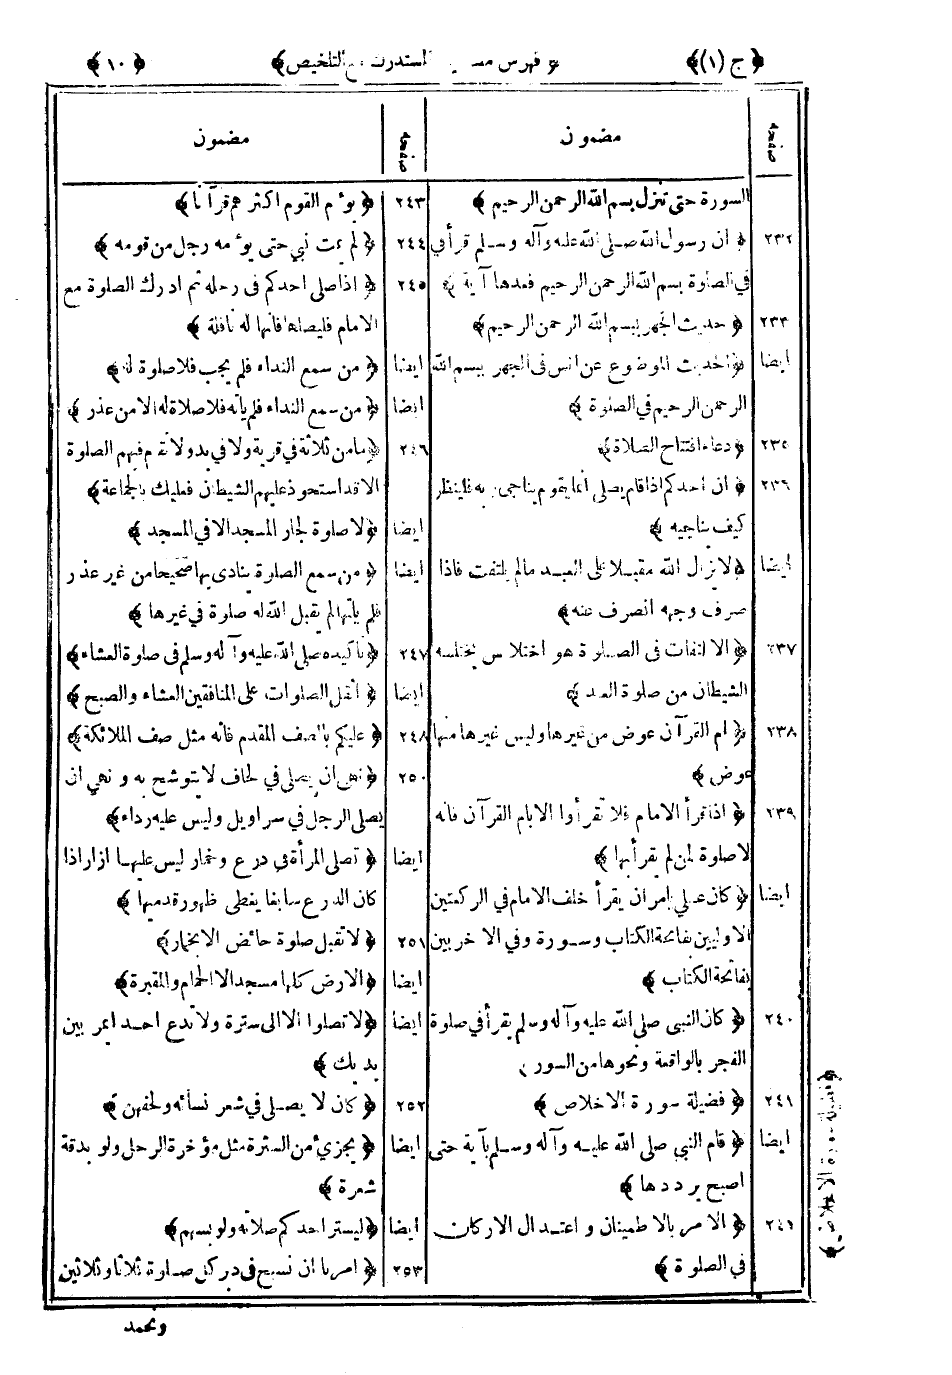 ﴿ ج (١)﴾ ﴿ فهرس المستدرك مع التلخيص﴾ ﴿ ١٠ ﴾
صفحه مضمون
السورة حتى تنزل بسم الله الرحمن الرحيم ﴾
٢٣٢ ﴿ ان رسول الله صلى الله عليه وآله وسلم قرأ في
في الصلوة بسم الله الرحمن الرحيم فعدها آية ﴾
٢٣٣ ﴿ حديث الجهر ببسم الله الرحمن الرحيم﴾
ايضا ﴿الحديث الموضوع عن انس فى الجهر ببسم الله
الرحمن الرحيم في الصلوة ﴾
٢٣٥ ﴿ دعاء افتتاح الصلاة﴾
٢٣٦ ﴿ ان احدكم اذا قام يصلى انما يقوم يناجى ربه فلينظر
كيف يناجيه ﴾
ايضا ﴿لا يزال الله مقبلا على العبد مالم يلتفت فاذا
صرف وجهه انصرف عنه﴾
٢٣٧ ﴿ الالتفات فى الصلوة هو اختلاس يختلسه
الشيطان من صلوة العبد ﴾
٢٣٨ ﴿ ام القرآن عوض من غيرها وليس غيرها منها
عوض ﴾
٢٣٩ ﴿ اذا قرأ الامام فلا تقرأوا الا بام القرآن فانه
لا صلوة لمن لم يقرأ بها ﴾
ايضا ﴿ كان علي يامر ان يقرأ خلف الامام في الركعتين
الاوليين بفاتحة الكتاب وسورة وفي الاخريين
بفاتحة الكتاب ﴾
٢٤٠ ﴿ كان النبى صلى الله عليه وآله وسلم يقرأ في صلوة
الفجر بالواقعة ونحوها من السور ﴾
٢٤١ ﴿ فضيلة سورة الاخلاص ﴾
ايضا ﴿ قام النبي صلى الله عليه وآله وسلم بآية حتى
اصبح يرددها ﴾
٢٤١ ﴿ الامر بالاطمينان و اعتدال الاركان
في الصلوة ﴾
صفحه مضمون
٢٤٣ ﴿ يؤم القوم اكثرهم قرآنا ﴾
٢٤٤ ﴿ لم يمت نبي حتى يؤمه رجل من قومه ﴾
٢٤٥ ﴿ اذا صلى احدكم فى رحله ثم ادرك الصلوة مع
الامام فليصلها فانها له نافلة ﴾
ايضا ﴿ من سمع النداء فلم يجب فلا صلوة له ﴾
ايضا ﴿ من سمع النداء فلم يأته فلا صلاة له الا من عذر ﴾
٢٤٦ ﴿ ما من ثلاثة في قرية ولا في بدو لا تقام فيهم الصلوة
الا قد استحوذ عليهم الشيطان فعليك بالجماعة﴾
ايضا ﴿لا صلوة لجار المسجد الا في المسجد ﴾
ايضا ﴿ من سمع الصلوة ينادى بها صحيحا من غير عذر
فلم يأتها لم يقبل الله له صلوة في غيرها ﴾
٢٤٧ ﴿ تأكيده صلى الله عليه وآله وسلم فى صلوة العشاء﴾
ايضا ﴿ اثقل الصلوات على المنافقين العشاء والصبح ﴾
٢٤٨ ﴿ عليكم بالصف المقدم فانه مثل صف الملائكة ﴾
٢٥٠ ﴿ نهى ان يصلي في لحاف لا يتوشح به و نهي ان
يصلى الرجل في سراويل وليس عليه رداء﴾
ايضا ﴿ تصلى المرأة في درع وخمار ليس عليها ازار اذا
كان الدرع سابغا يغطى ظهور قدميها ﴾
٢٥١ ﴿ لا تقبل صلوة حائض الا بخمار﴾
ايضا ﴿الارض كلها مسجد الا الحمام والمقبرة﴾
ايضا ﴿لا تصلوا الا الى سترة ولا تدع احدا يمر بين
يديك ﴾
٢٥٢ ﴿ كان لا يصلى في شعر نسائه ولحفهن ﴾
ايضا ﴿ يجزئ من السترة مثل مؤخرة الرحل ولو بدقة
شعرة ﴾
ايضا ﴿ليستر احدكم صلاته ولو بسهم﴾
٢٥٣ ﴿ امرنا ان نسبح فى دبر كل صلوة ثلاثا وثلاثين
ونحمد